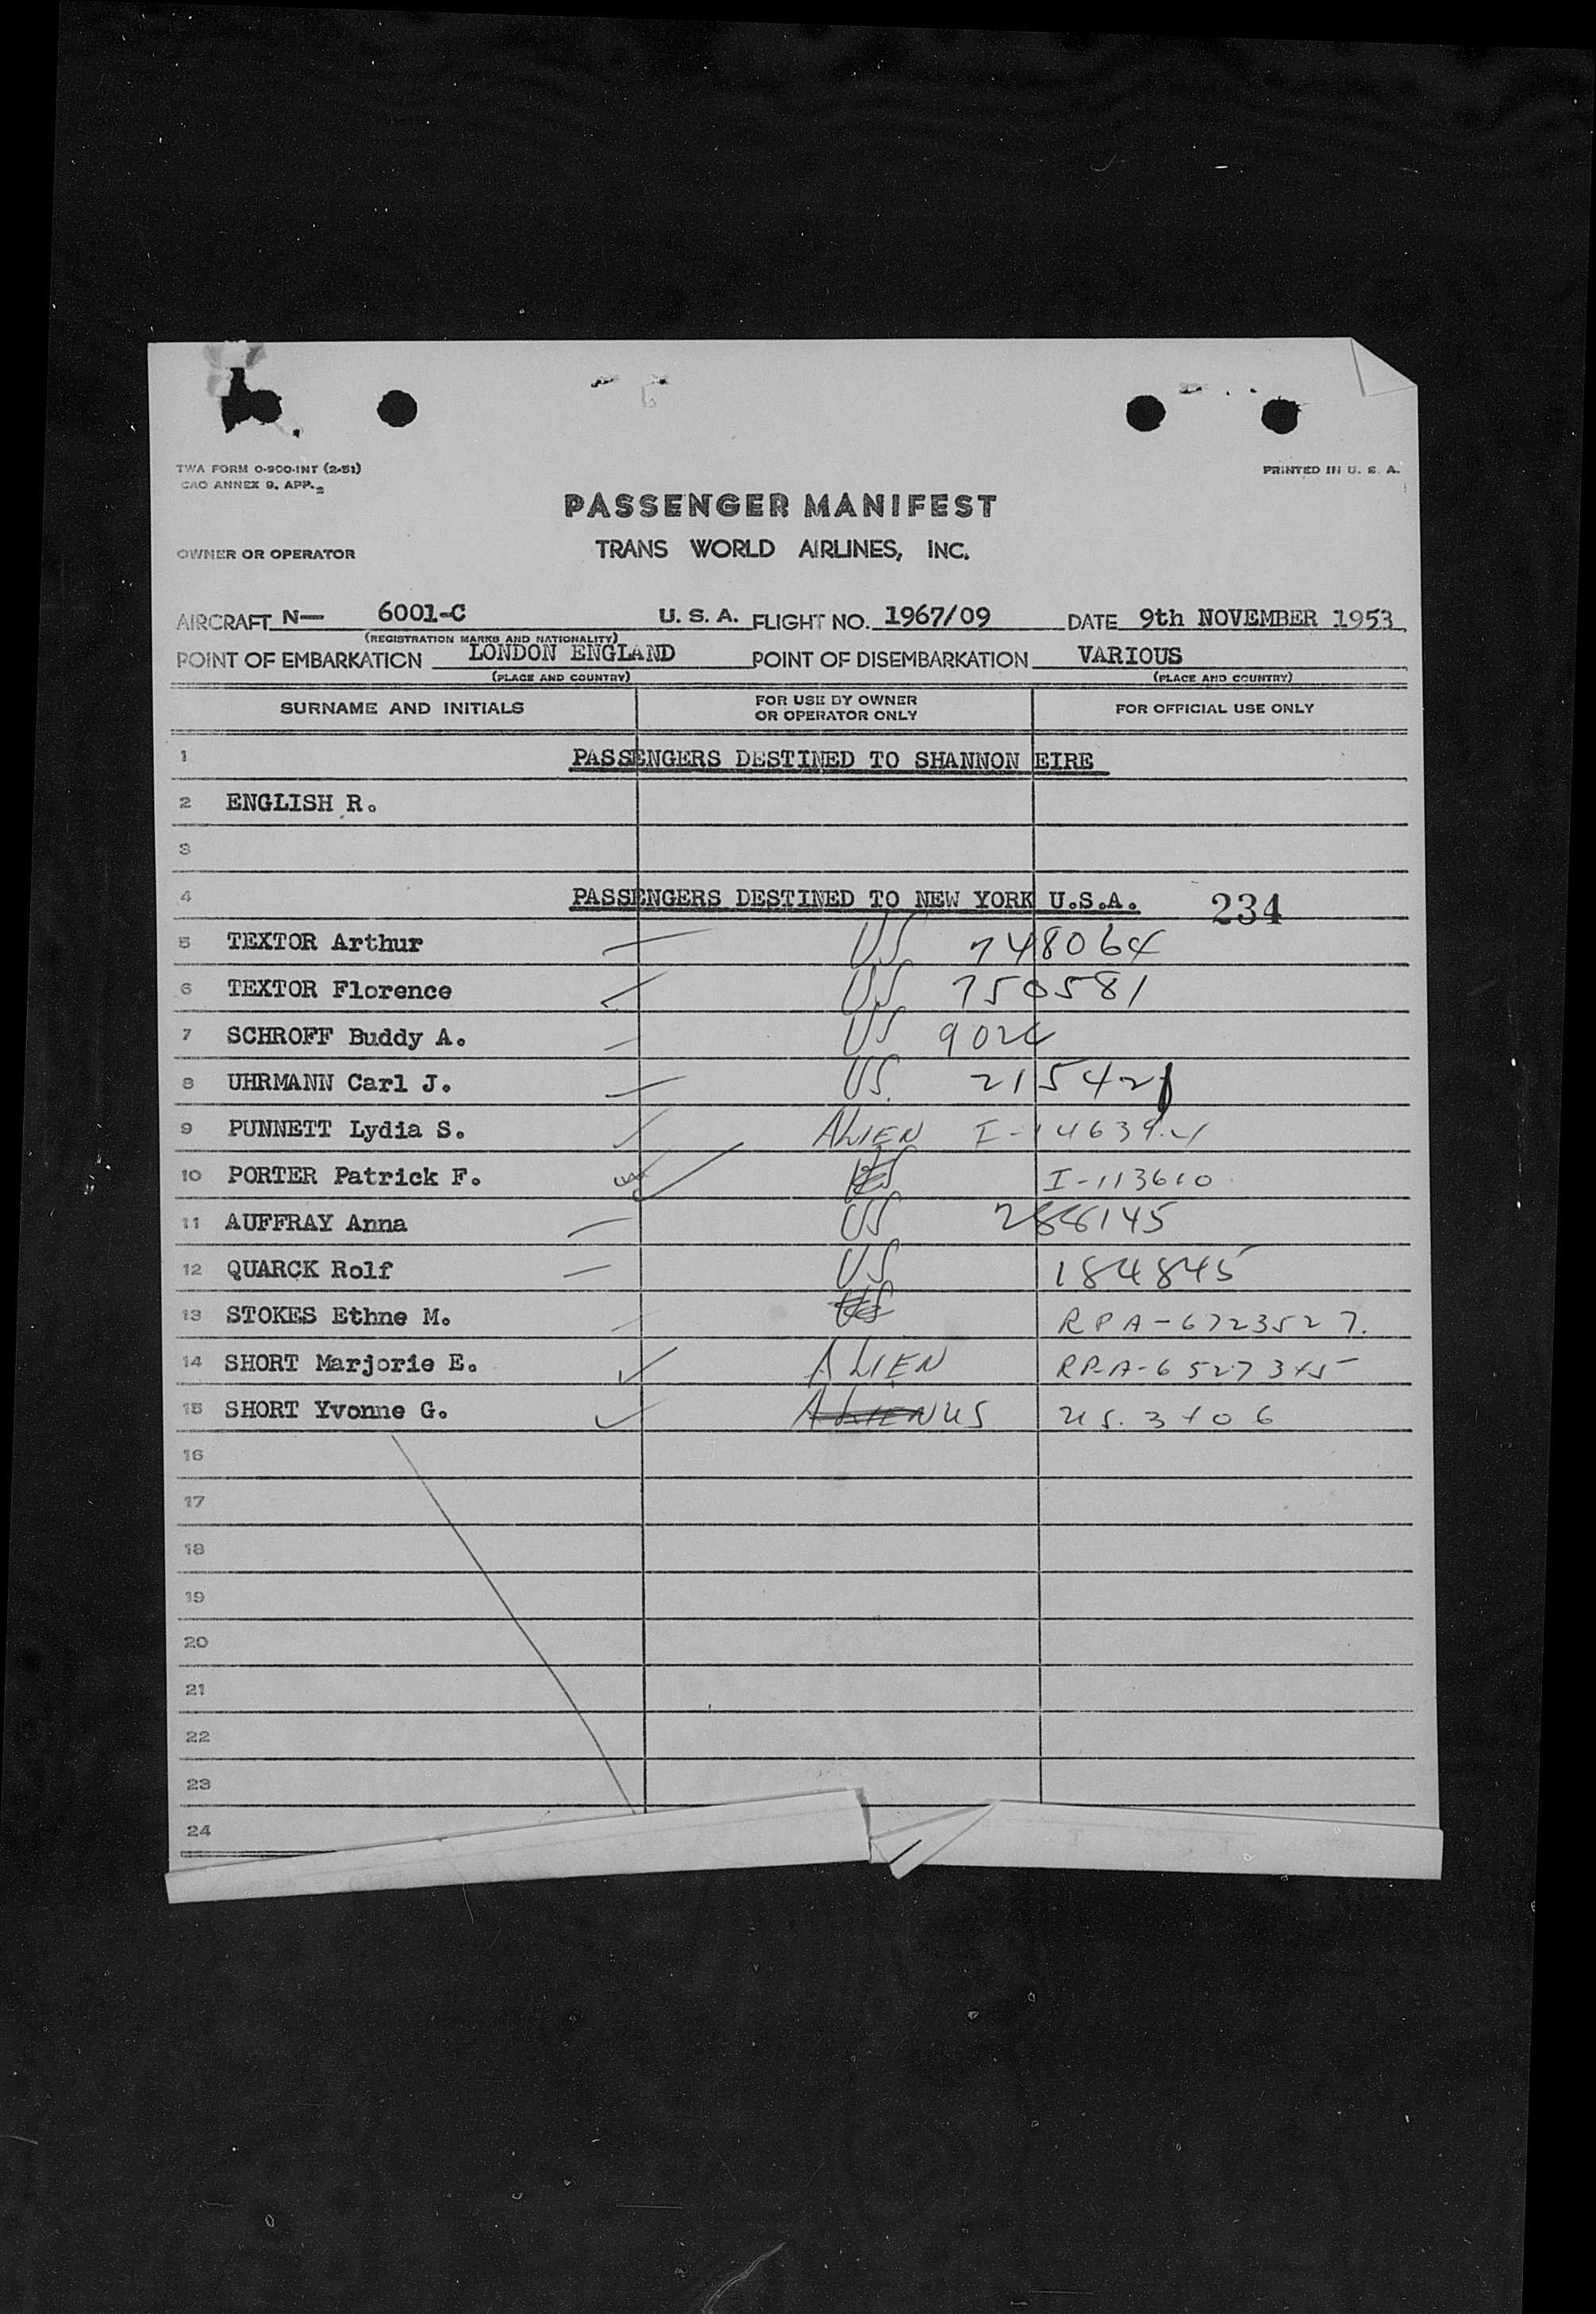 TWA FORM O-900-INT (2-51)
PRINTED IN U. S. A.
CAO ANNEX 9. APP. 2
PASSENGER MANIFEST
OWNER OR OPERATOR
TRANS WORLD AIRLINES, INC.
AIRCRAFT N— 6001-C U. S. A. FLIGHT NO. 1967/09 DATE 9th NOVEMBER 1953
(REGISTRATION MARKS AND NATIONALITY)
POINT OF EMBARKATION LONDON ENGLAND POINT OF DISEMBARKATION VARIOUS
(PLACE AND COUNTRY) (PLACE AND COUNTRY)
SURNAME AND INITIALS FOR USE BY OWNER OR OPERATOR ONLY FOR OFFICIAL USE ONLY
1 PASSENGERS DESTINED TO SHANNON EIRE
2 ENGLISH R.
3
4 PASSENGERS DESTINED TO NEW YORK U.S.A. 234
5 TEXTOR Arthur US 748064
6 TEXTOR Florence US 750581
7 SCHROFF Buddy A. US
8 UHRMANN Carl J. US.
9 PUNNETT Lydia S. ALIEN
10 PORTER Patrick F. I-113610
11 AUFFRAY Anna US
12 QUARCK Rolf US 184845
13 STOKES Ethne M. RPA-6723527.
14 SHORT Marjorie E. ALIEN
15 SHORT Yvonne G. ALIEN US
16
17
18
19
20
21
22
23
24